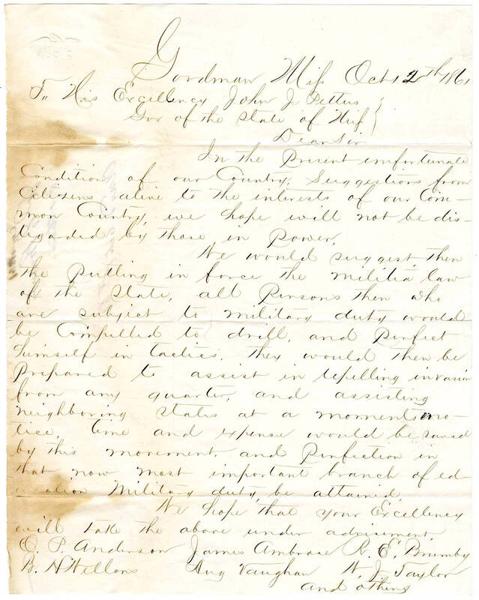 Goodman Miss Oct 12th 1861
To His Excellency John J Pettus
Gov of the State of Miss
Dear Sir
In the Present unfortunate
Condition of our Country, Suggestions from
Citizens alive to the interests of our Com-
mon Country, we hope will not be dis-
regarded by those in power.
We would suggest then
the putting in force the militia law
of the State, all Persons then who
are subject to military duty would
be Compelled to drill, and Perfect
himself in tactics. They would then be
Prepared to assist in repelling invasion
from any quarter, and assisting
neighboring States at a moments no-
tice time and expense would be saved
by this movement and Perfection in
that now most important branch of ed-
ucation Military duty, be attained.
We hope that your Excellency
will take the above under advisement
James Ambrose R. E. Brumby
Aug Vaughan W. J. Taylor
and others